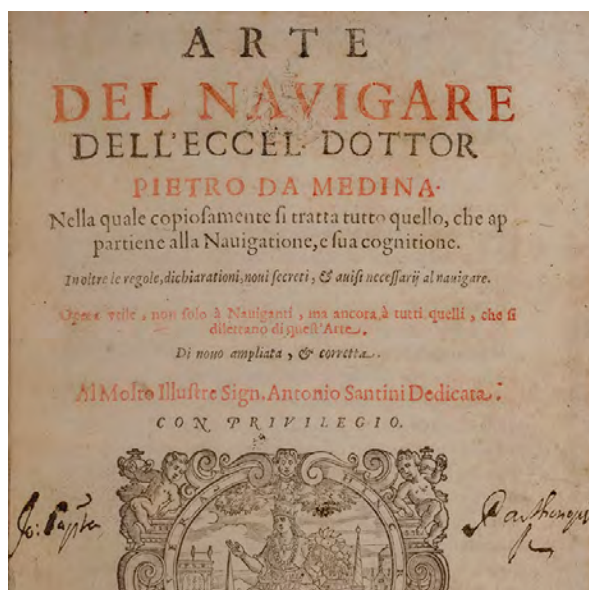 ARTE
DEL NAVIGARE
DELL'ECCEL. DOTTOR
PIETRO DA MEDINA.
Nella quale copioſamente ſi tratta tutto quello, che ap
partiene alla Nauigatione, e ſua cognitione.
Inoltre le regole, dichiarationi, noui ſecreti, & auiſi neceſſarij al nauigare.
Opera vtile, non ſolo à Nauiganti, ma ancora à tutti quelli, che ſi
dilettano di queſt'Arte.
Di nouo ampliata, & corretta.
Al Molto Illuſtre Sign. Antonio Santini Dedicata.
CON PRIVILEGIO.